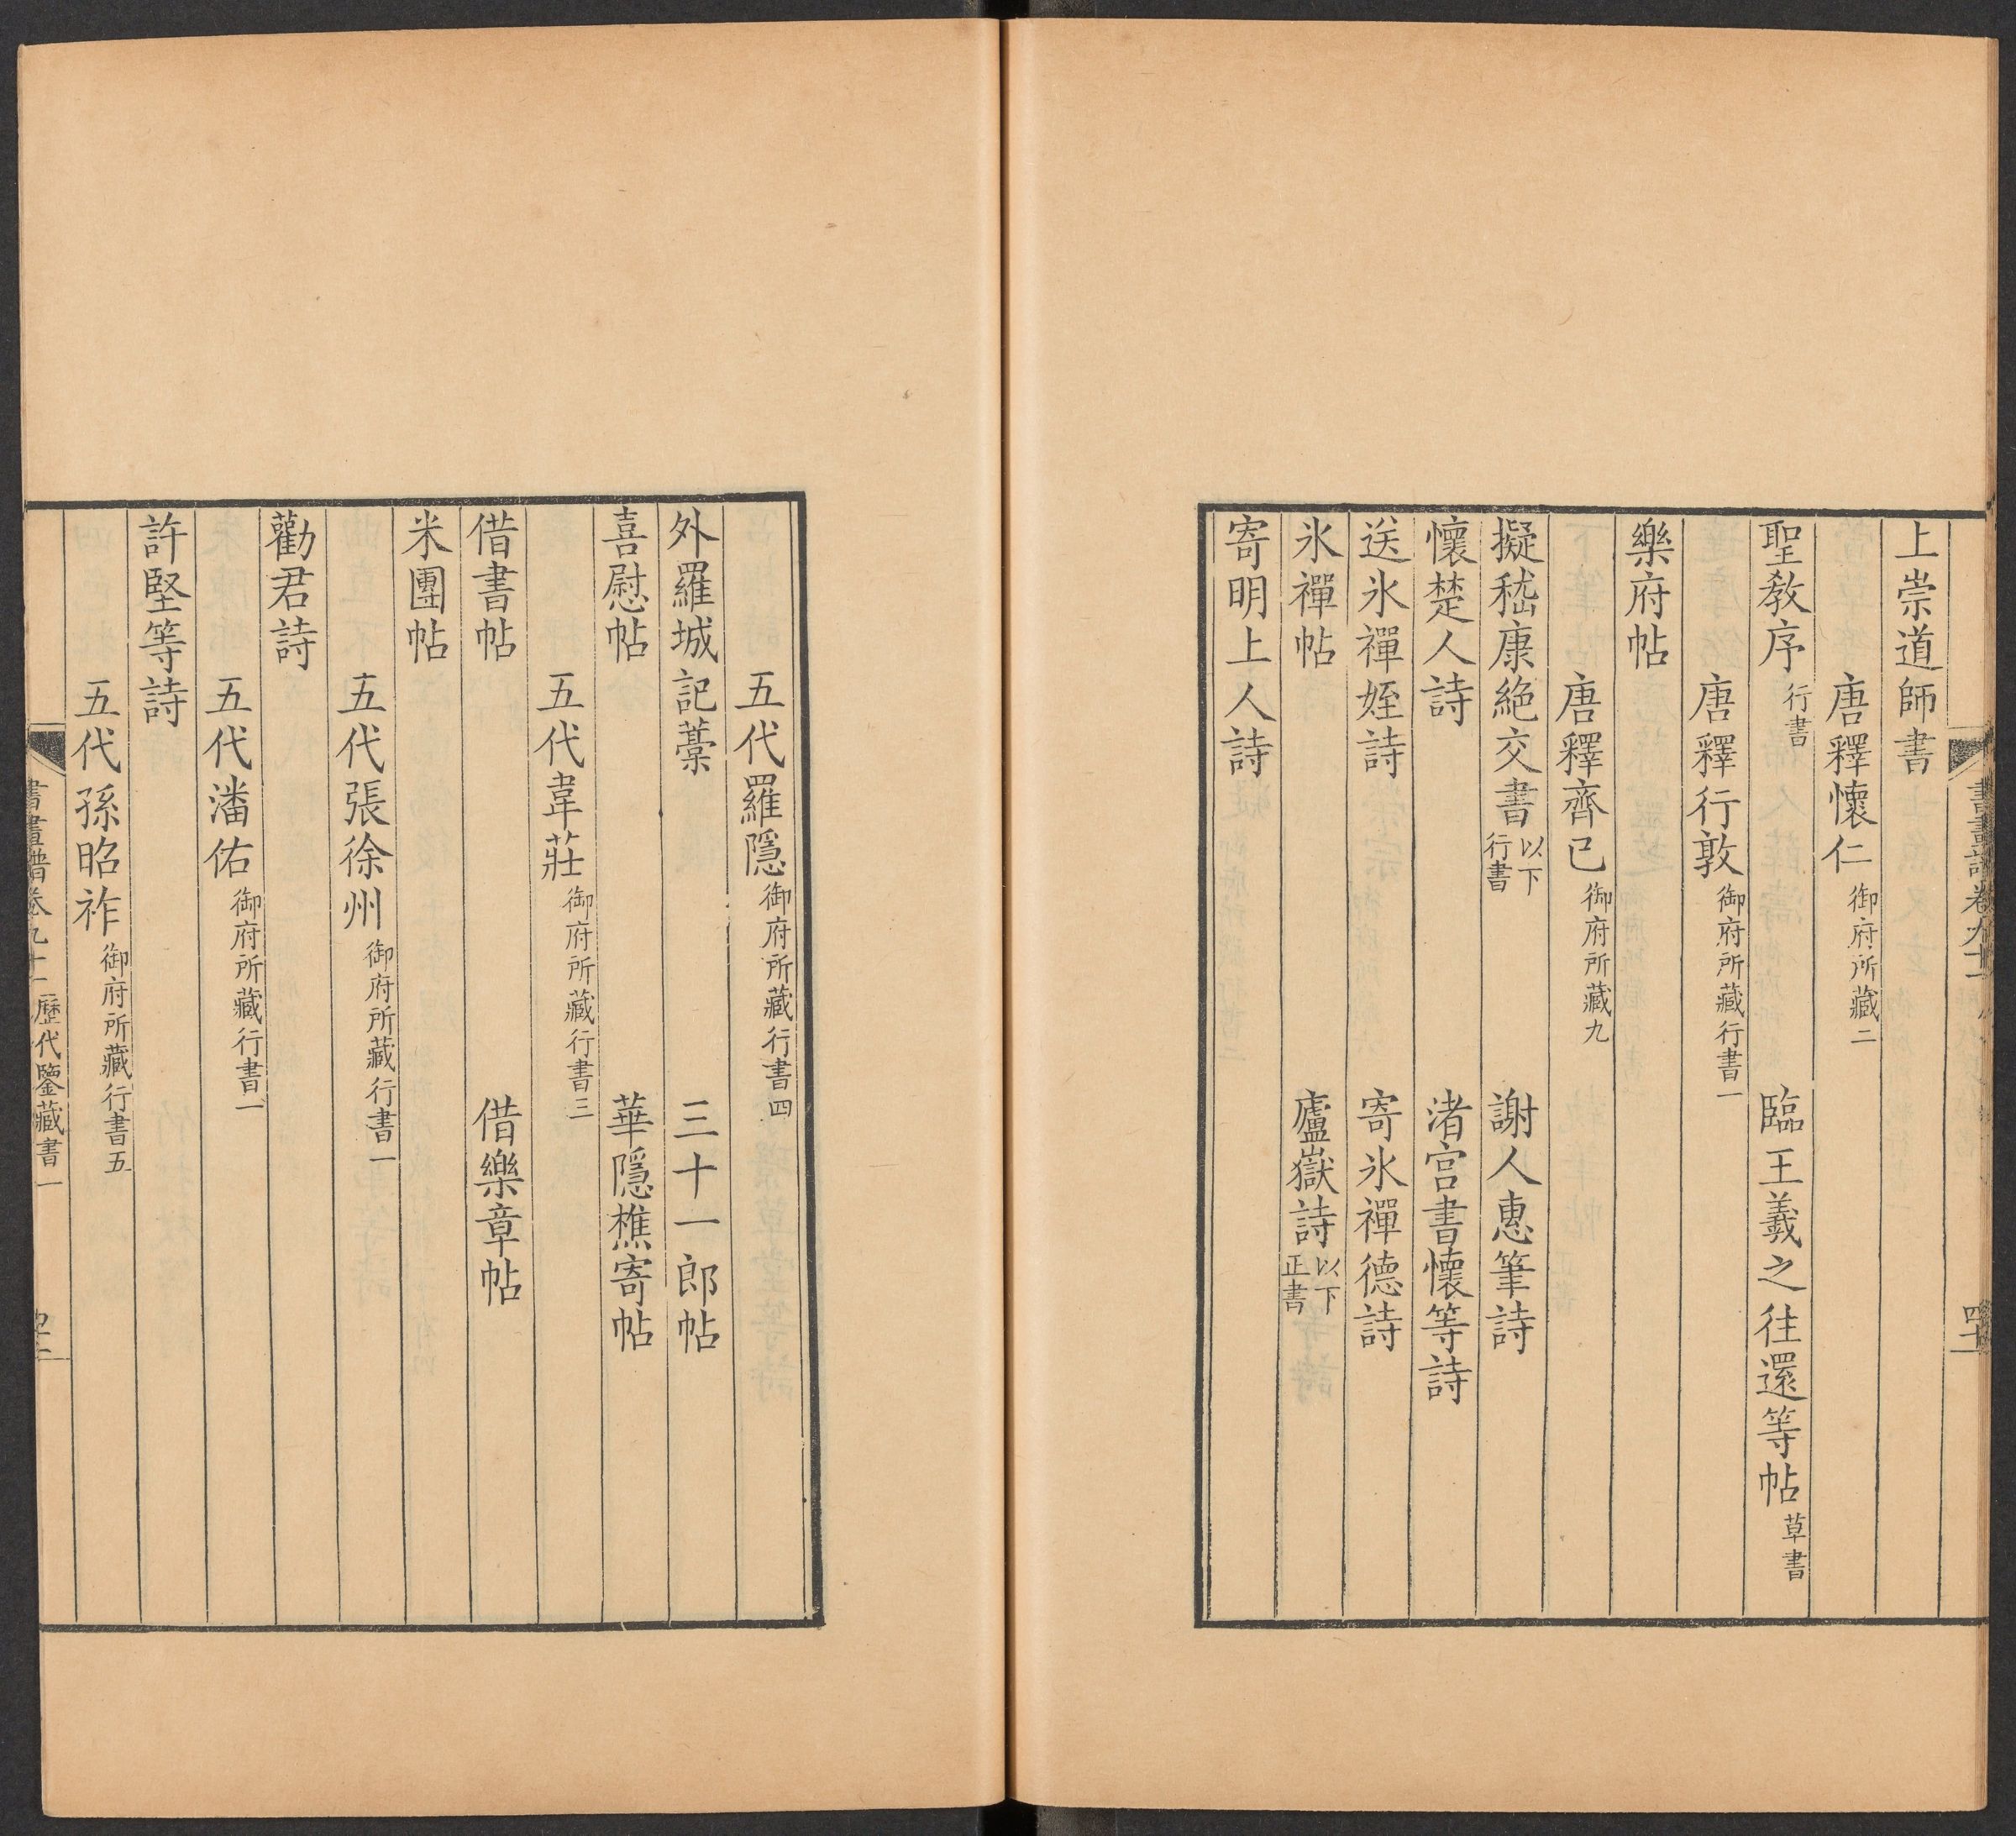 上崇道師書
唐釋懷仁御府所藏二
聖教序行書 臨王羲之往還等帖草書
唐釋行敦御府所藏行書一
樂府帖
唐釋齊己御府所藏九
擬嵇康絕交書以下行書 謝人惠筆詩
懷楚人詩 渚宮書懷等詩
送氷禪姪詩 寄氷禪德詩
氷禪帖 廬嶽詩以下正書
寄明上人詩
五代羅隱御府所藏行書四
外羅城記藁 三十一郎帖
喜慰帖 華隱樵寄帖
五代韋莊御府所藏行書三
借書帖 借樂章帖
米團帖
五代張徐州御府所藏行書一
勸君詩
五代潘佑御府所藏行書一
許堅等詩
五代孫昭祚御府所藏行書五
書畫譜卷九十一 歷代鑒藏書一